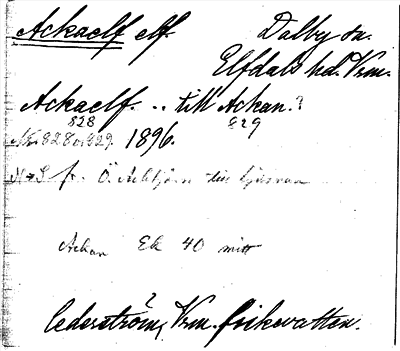 Ackaelf elf.
Dalby sn.
Elfdals hd. Vrm.
Ackaelf. .. till Ackan.?
828 829
No 828 o. 829. 1896.
N→S fr. Ö. Acktjärn till Ljusnan
Ackan Ek 40 mitt
Cederström, Vrm. fiskevatten.
?